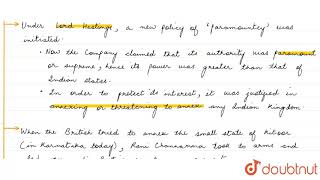 Under Lord Hastings, a new policy of 'paramountcy' was
initiated:
• Now the Company claimed that its authority was paramount
or supreme, hence its power was greater than that of
Indian States.
• In order to protect its interest, it was justified in
annexing or threatening to annex any Indian Kingdom
When the British tried to annex the small state of Kitoor
(in Karnataka today), Rani Channamma took to arms and
doubtnut